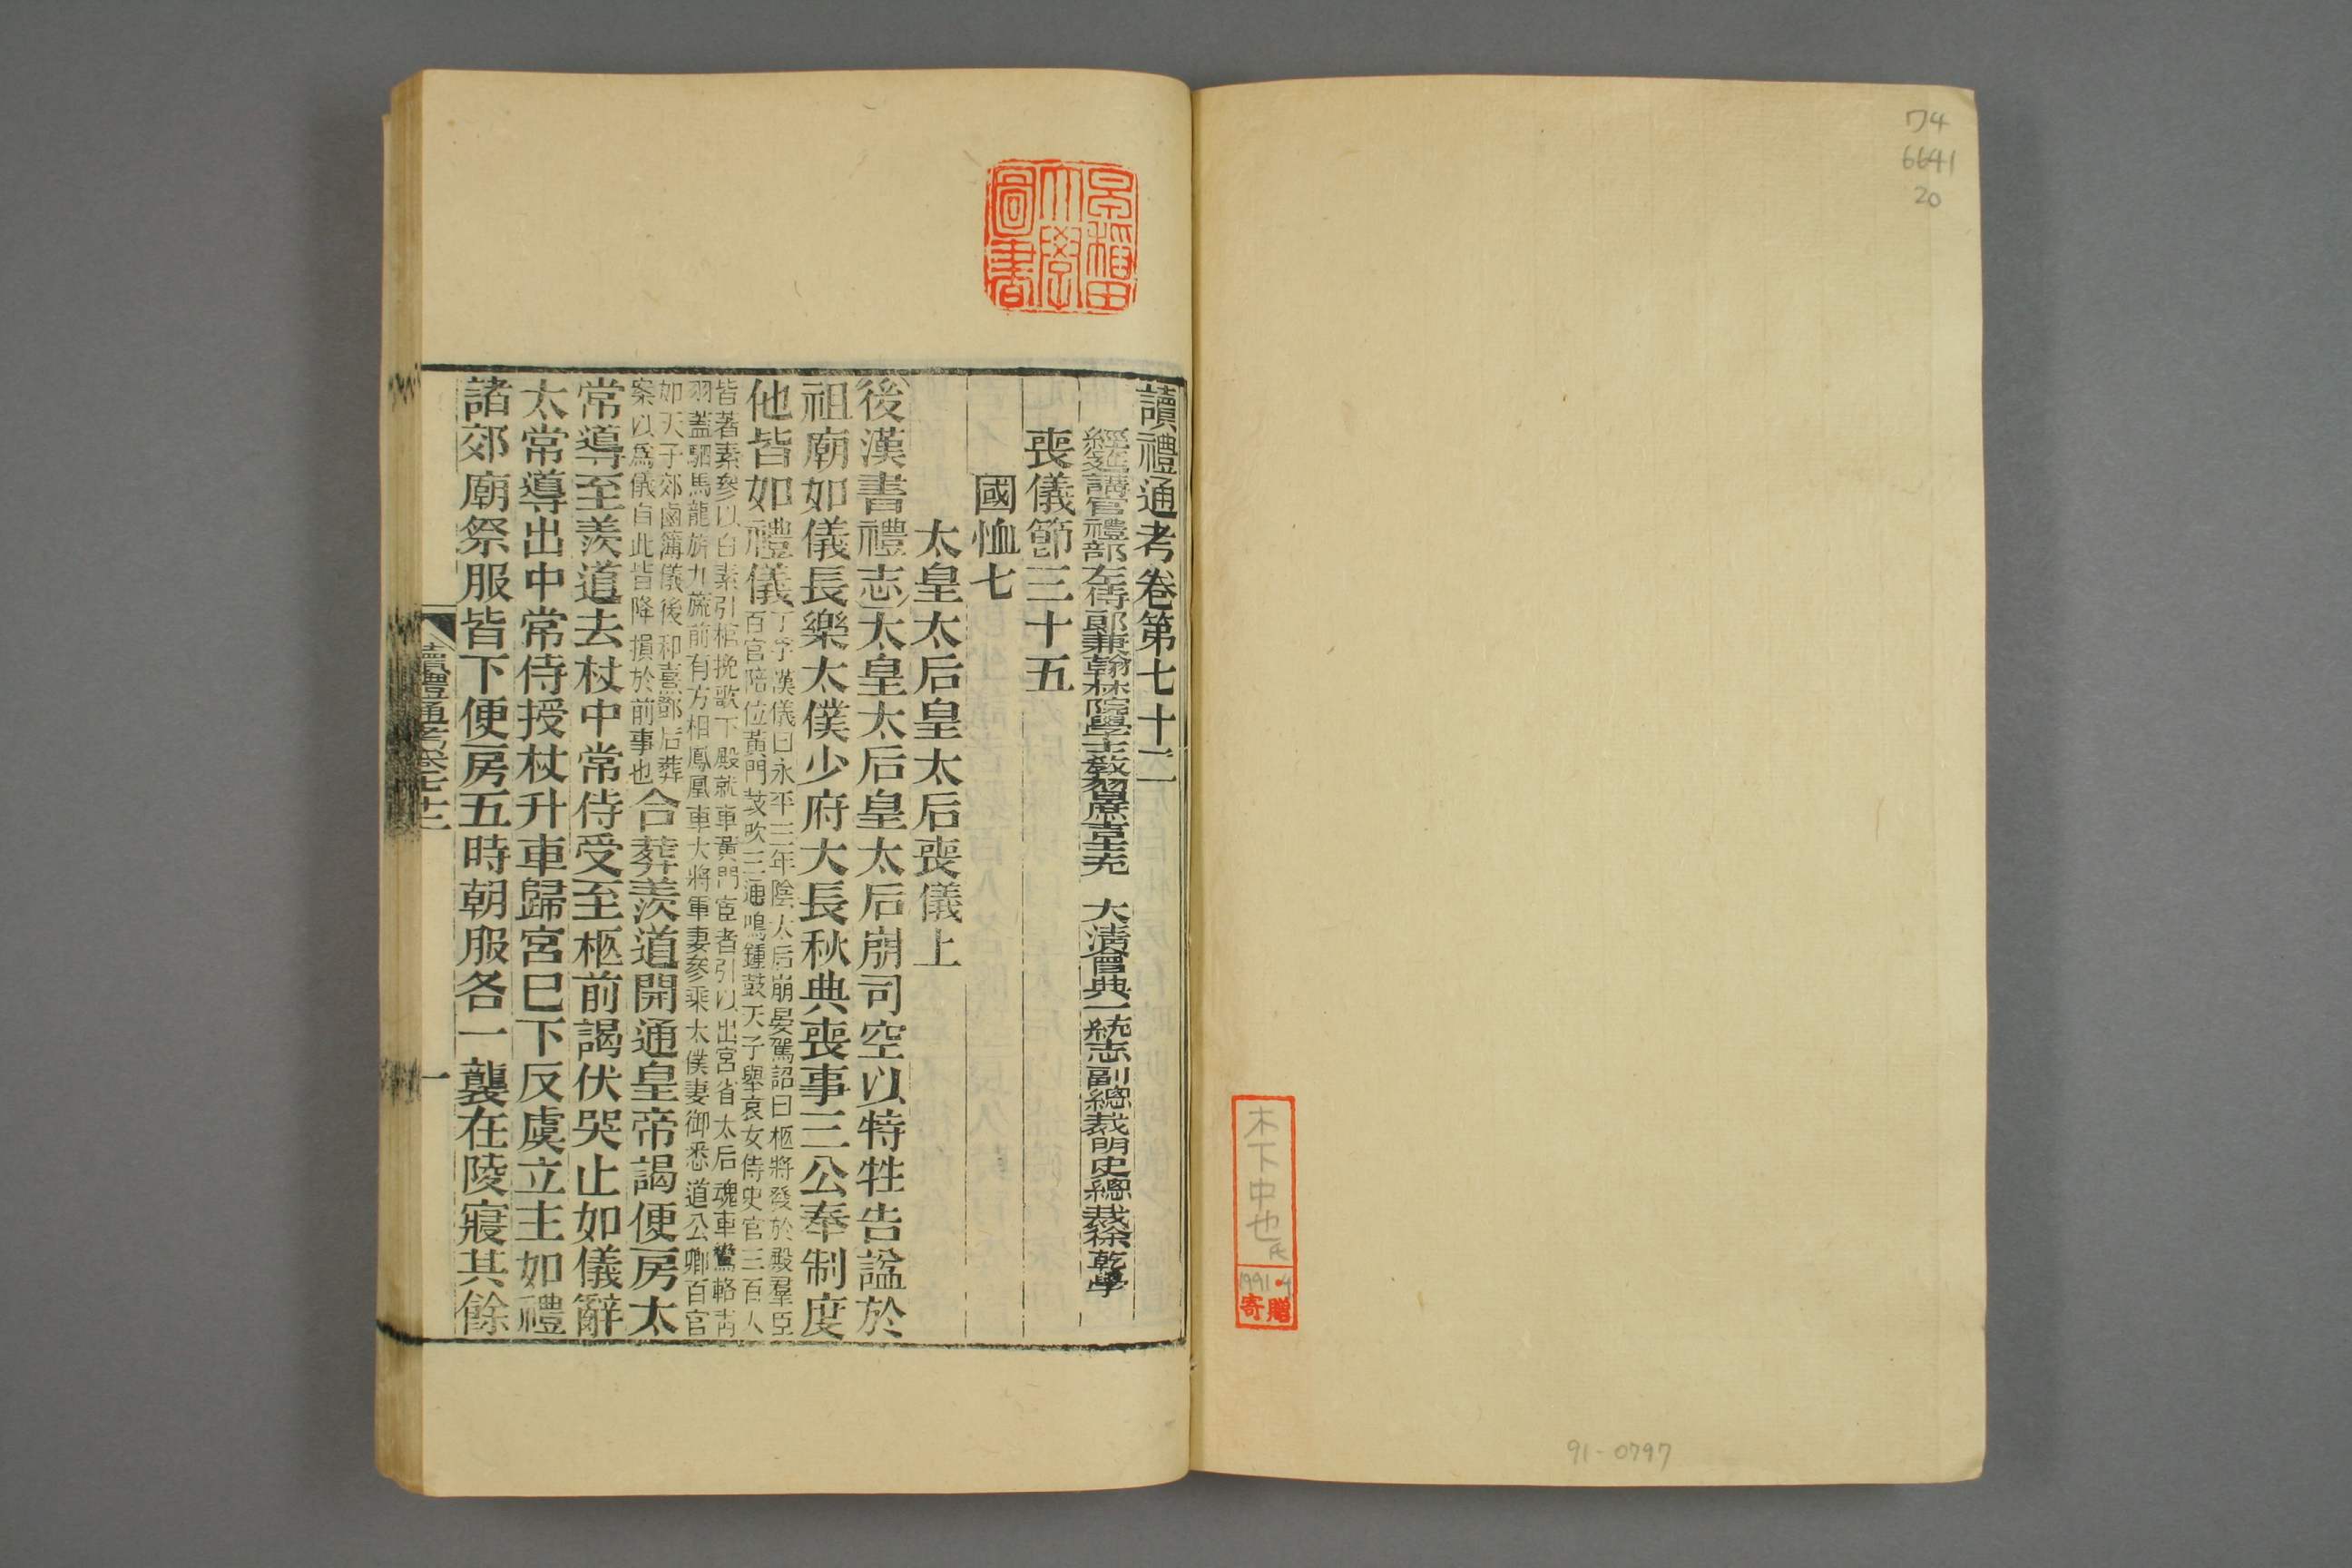 讀禮通考卷第七十二
經筵講官禮部左侍郎兼翰林院學士教習庶吉士充　大清會典一統志副總裁明史總裁徐乾學
喪儀節三十五
國恤七
太皇太后皇太后喪儀上
後漢書禮志太皇太后皇太后崩司空以特牲告諡於
祖廟如儀長樂太僕少府大長秋典喪事三公奉制度
他皆如禮儀
丁孚漢儀曰永平三年陰太后崩晏駕詔曰柩將發於殿羣臣
百官陪位黃門鼓吹三通鳴鍾鼓天子舉哀女侍史官三百人
皆著素參以白素引棺挽歌下殿就車黃門宦者引以出宮省太后魂車鸞輅青
羽蓋駟馬龍旂九旒前有方相鳳凰車大將軍妻參乘太僕妻御悉道公卿百官
如天子郊鹵簿儀後和熹鄧后葬
案以為儀自此皆降損於前事也
合葬羨道開通皇帝謁便房太
常導至羨道去杖中常侍受至柩前謁伏哭止如儀辭
太常導出中常侍授杖升車歸宮已下反虞立主如禮
諸郊廟祭服皆下便房五時朝服各一襲在陵寢其餘
讀禮通考卷七十二
一
早稲田
大學
圖書
74
6641
20
木下中也氏
1991.4
寄贈
91-0797